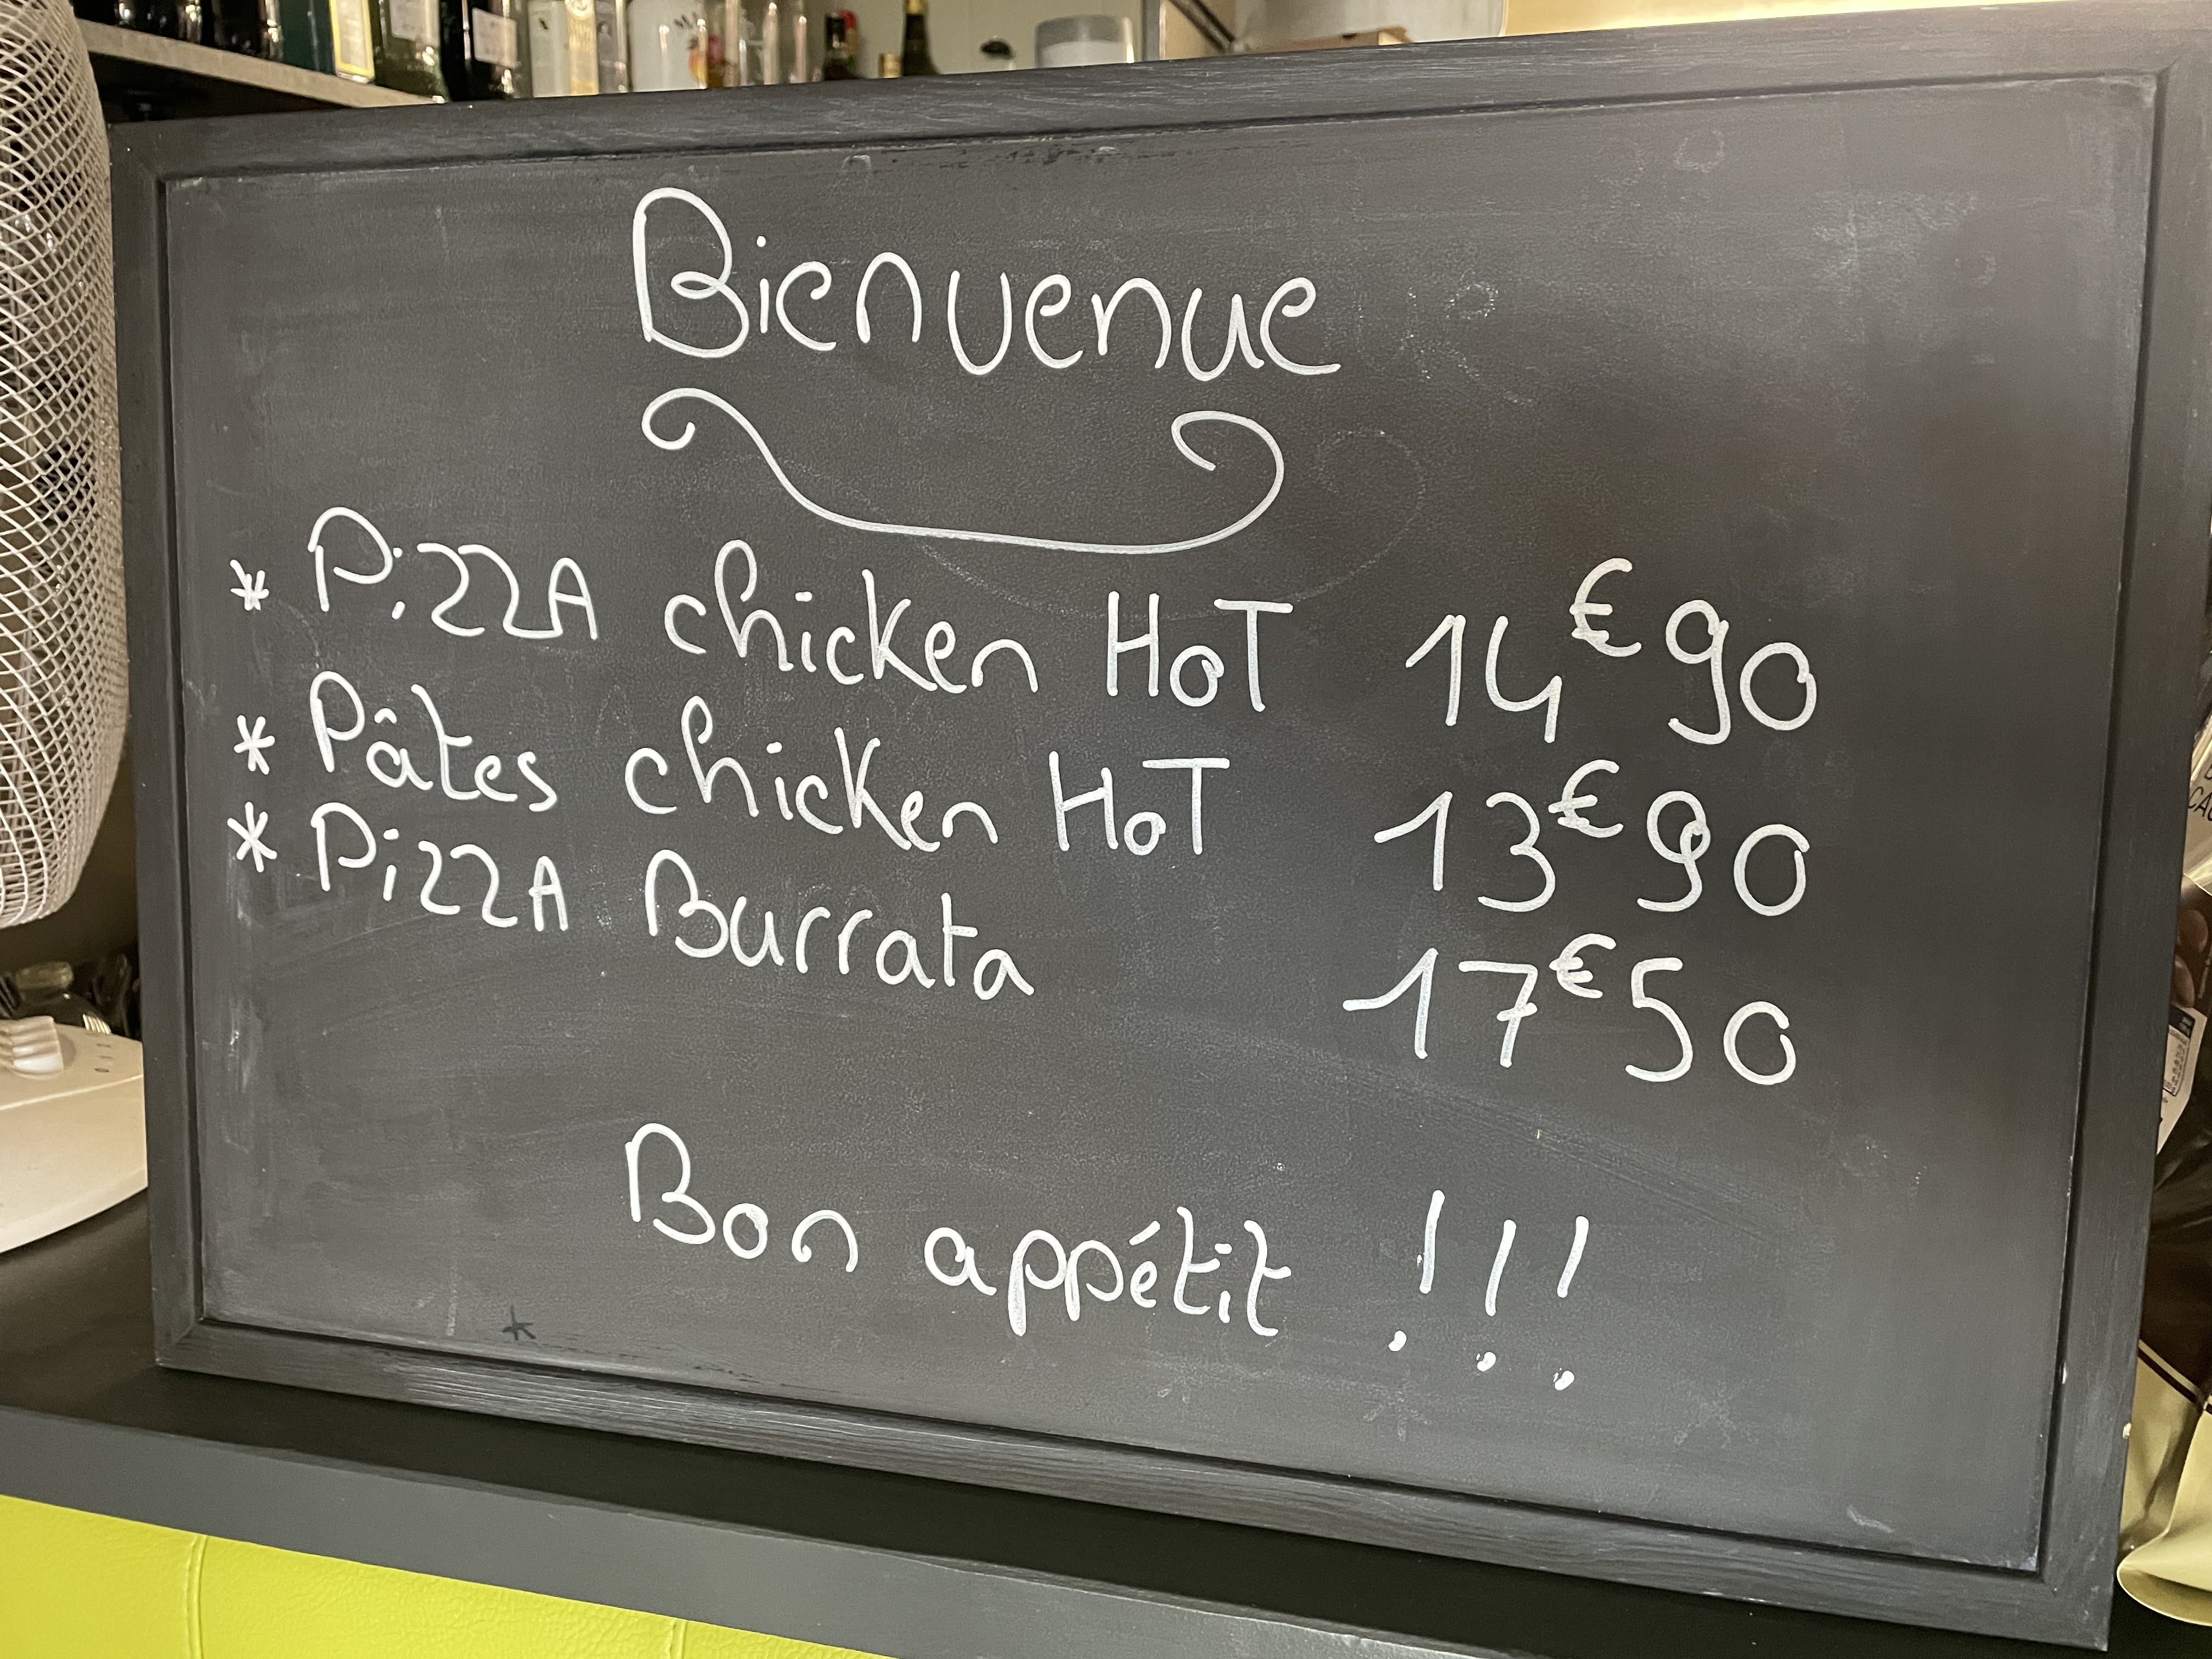 Bienvenue
* PizzA chicken HoT 14€90
* Pâtes chicken HoT 13€90
* PizzA Burrata 17€50
Bon appétit !!!